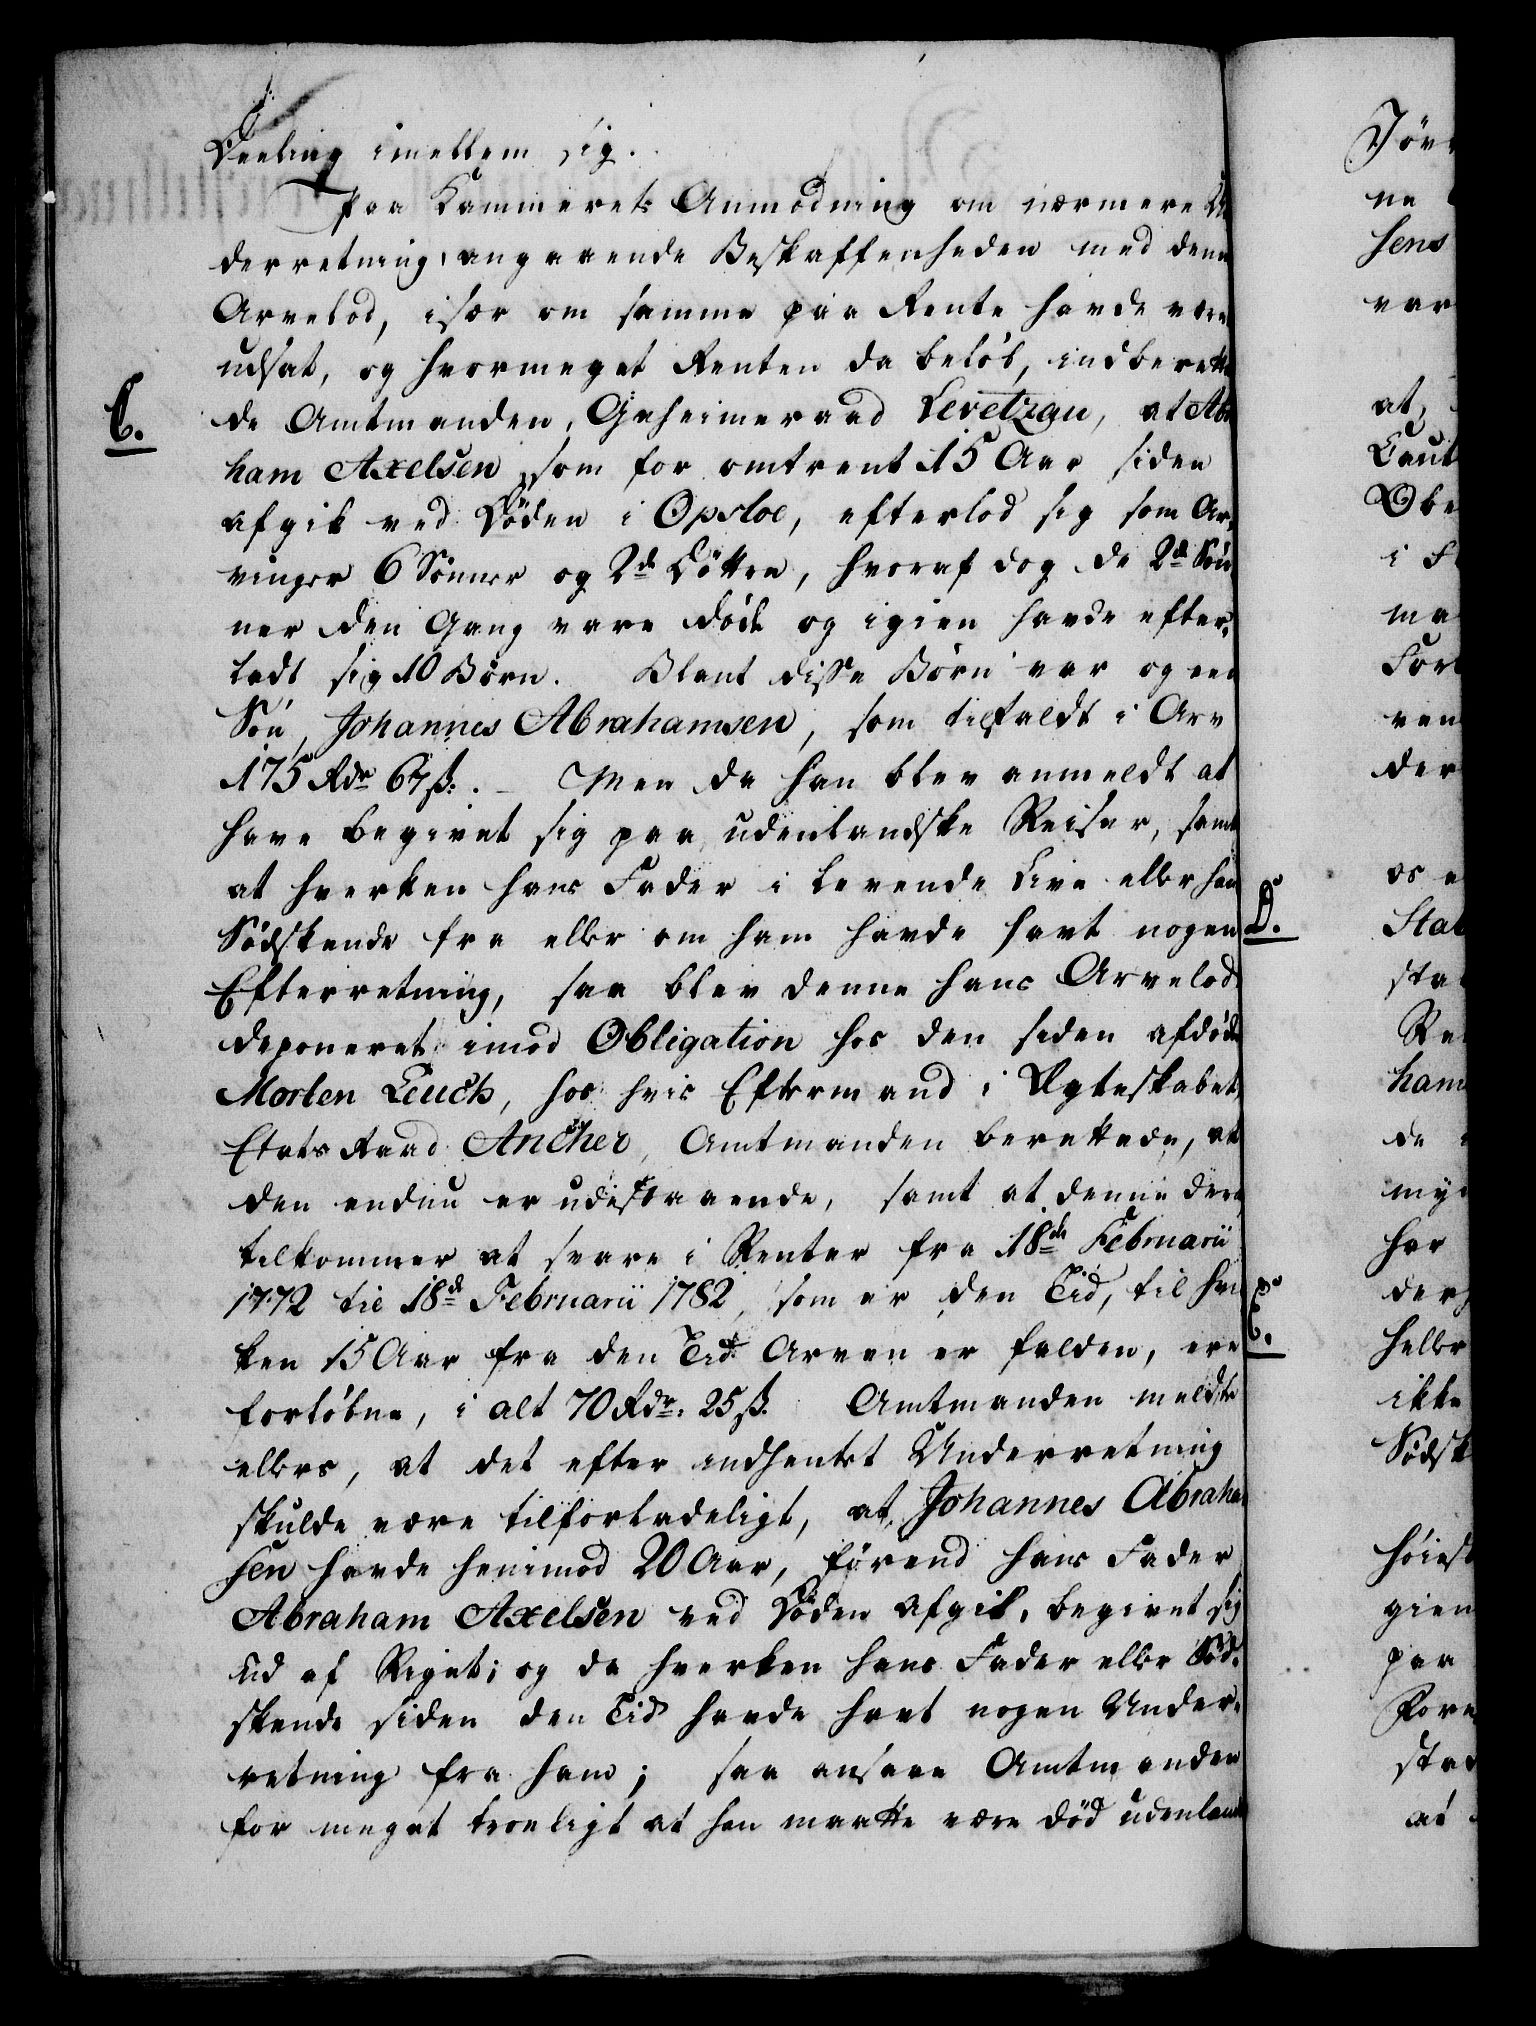 Deeling imellem sig.
Paa Kammerets Anmodning om nærmere U
derretning, angaaende Beskaffenheden med denn
Arvelod, især om samme paa Rente havde vær
udsat, og hvormeget Renten da beløb, indberette
C.
de Amtmanden, Geheimeraad Levetzau, at Abra
ham Axelsen, som for omtrent 15 Aar siden
afgik ved Døden i Opsloe, efterlod sig som Ar,
vinger 6 Sønner og 2de Døttre, hvoraf dog de 2de Søn
ner den Gang vare døde og igien havde efter,
ladt sig 10 Børn. Blant disse Børn var og een
Søn, Johannes Abrahamsen, som tilfaldt i Arv
175 Rdr 67 ß. - Men da han blev anmeldt at
have begivet sig paa udenlandske Reiser, samt
at hverken hans Fader i levende Live eller han
Sødskende fra eller om ham havde havt nogen
Efterretning, saa blev denne hans Arvelod
deponeret imod Obligation hos den siden afdøde
Morten Leuch, hos hvis Eftermand i Ægteskabet,
Etats Raad Ancher, Amtmanden berettede, at
den endnu er udestaaende, samt at denne der
tilkommer at svare i Renter fra 18de Februarii
1772 til 18de Februarii 1782, som er den Tid, til hvil
ken 15 Aar fra den Tid Arven er falden, ere
forløbne, i alt 70 Rdr. 25 ß. Amtmanden meldte
ellers, at det efter indhentet Underretning
skulde være tilforladeligt, at Johannes Abraham
sen havde henimod 20 Aar, førend hans Fader
Abraham Axelsen ved Døden afgik, begivet sig
ud af Riget; og da hverken hans Fader eller Sød,
skende siden den Tid havde havt nogen Under,
retning fra ham; saa ansaae Amtmanden
for meget troeligt at han maatte være død udenland
D.
E.
Jør
ne
sens
var
at,
Caut
Obe
i F
ma
For
ven
der
os e
Stat
sta
Re
ham
de
my
har
der
heller
ikke
Sødsk
høiest
gien
paa
Fore
sta
at